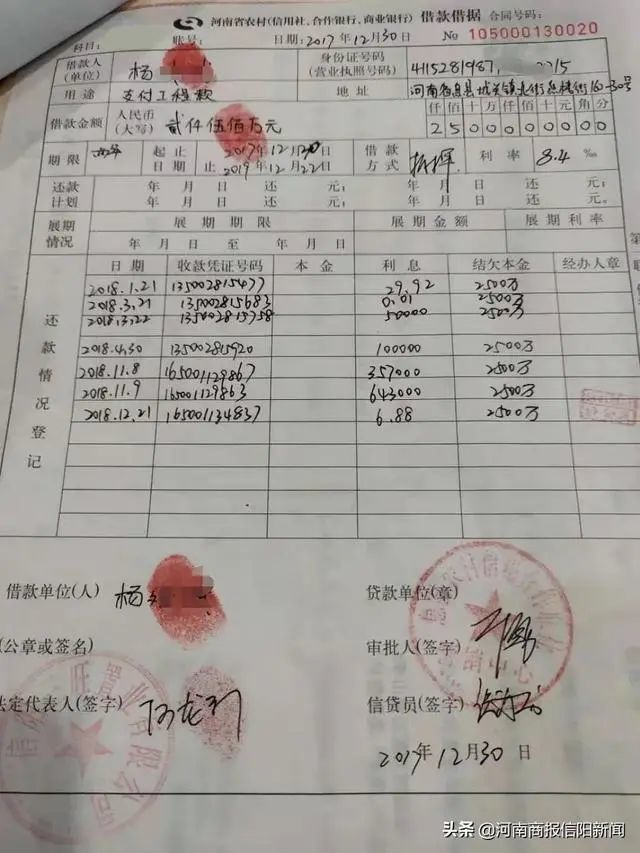 河南省农村(信用社、合作银行、商业银行) 借款借据 合同号码:
科目: 账号: 日期: 2017年12月30日 № 105000130020
借款人(单位) 杨 身份证号码(营业执照号码) 4115281987, 2215
用途 支付工程款 地址 河南省息县城关镇
借款金额 人民币(大写) 贰仟伍佰万元 仟佰十万仟佰十元角分
2500000000
期限 起止日期 2017年12月30日 借款方式 利率 8.4‰
止 2019年12月22日
还款计划 年 月 日 还 元; 年 月 日 还 元;
年 月 日 还 元; 年 月 日 还 元。
展期情况 展期期限 展期金额 展期利率
年 月 日 至 年 月 日
还款情况登记
日期 收款凭证号码 本金 利息 结欠本金 经办人章
2018.1.21 135002815477 29.92 2500万
2018.3.21 135002815683 0.01 2500万
2018.3.22 135002815758 50000 2500万
2018.4.30 135002815920 100000 2500万
2018.11.8 165001129867 357000 2500万
2018.11.9 165001129863 643000 2500万
2018.12.21 165001134837 6.88 2500万
借款单位(人) 杨 贷款单位(章)
(公章或签名) 审批人(签字)
法定代表人(签字) 信贷员(签字)
2017年12月30日
头条 @河南商报信阳新闻